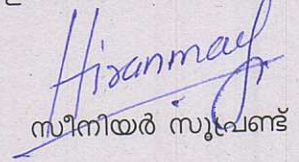 Hiranmay
സീനിയർ സൂപ്രണ്ട്